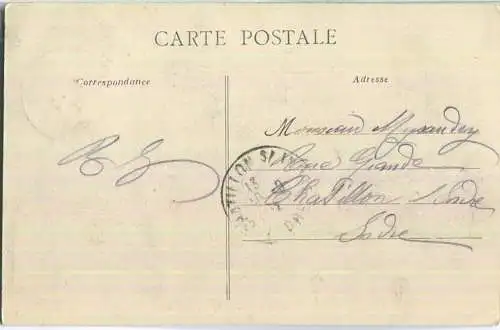 CARTE POSTALE
Correspondance
Adresse
Monsieur
Rue Grande
Chatillon s Indre
Indre
CHATILLON S